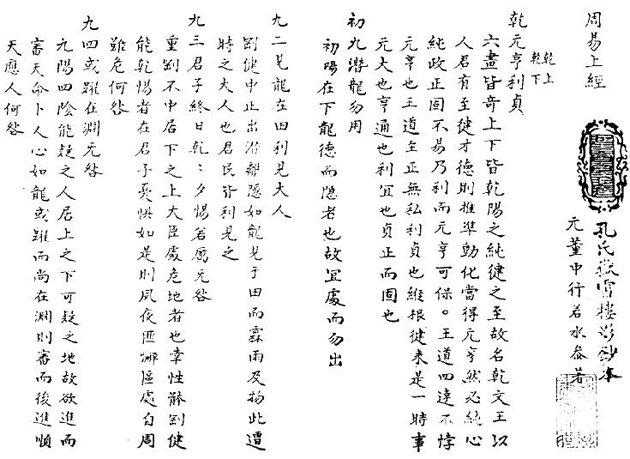 周易上經
孔氏嶽雪樓影鈔本
元董中行若水叅著
乾上
乾下
乾元亨利貞
六畫皆竒上下皆乾陽之純健之至故名乾文王以
人君有至健才德則推準動化當得元亨然必純心
純政正固不易乃利而元亨可保。王道四達不悖
元亨也王道至正無私利貞也縱根健来是一時事
元大也亨通也利宜也貞正而固也
初九潛龍勿用
初陽在下龍德而隱者也故宜處而勿出
九二見龍在田利見大人
剛健中正出治離隱如龍見于田而霖雨及物此遭
時之大人也君民皆利見之
九三君子終日乾〻夕惕若厲无咎
重剛不中居下之上大臣處危地者也幸性體剛健
能乾惕者在君子憂惧如是則夙夜匪懈區處自周
雖危何咎
九四或躍在淵无咎
九陽四陰能疑之人居上之下可疑之地故欲進而
審天命卜人心如龍或躍而尚在淵則審而後進順
天應人何咎